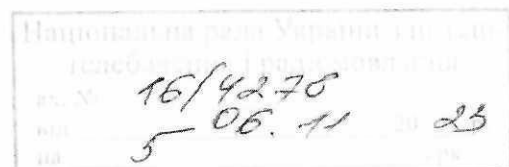 Національна рада України з питань
телебачення і радіомовлення
вх. № 16/4278
від 06. 11 20 23
на 5 арк